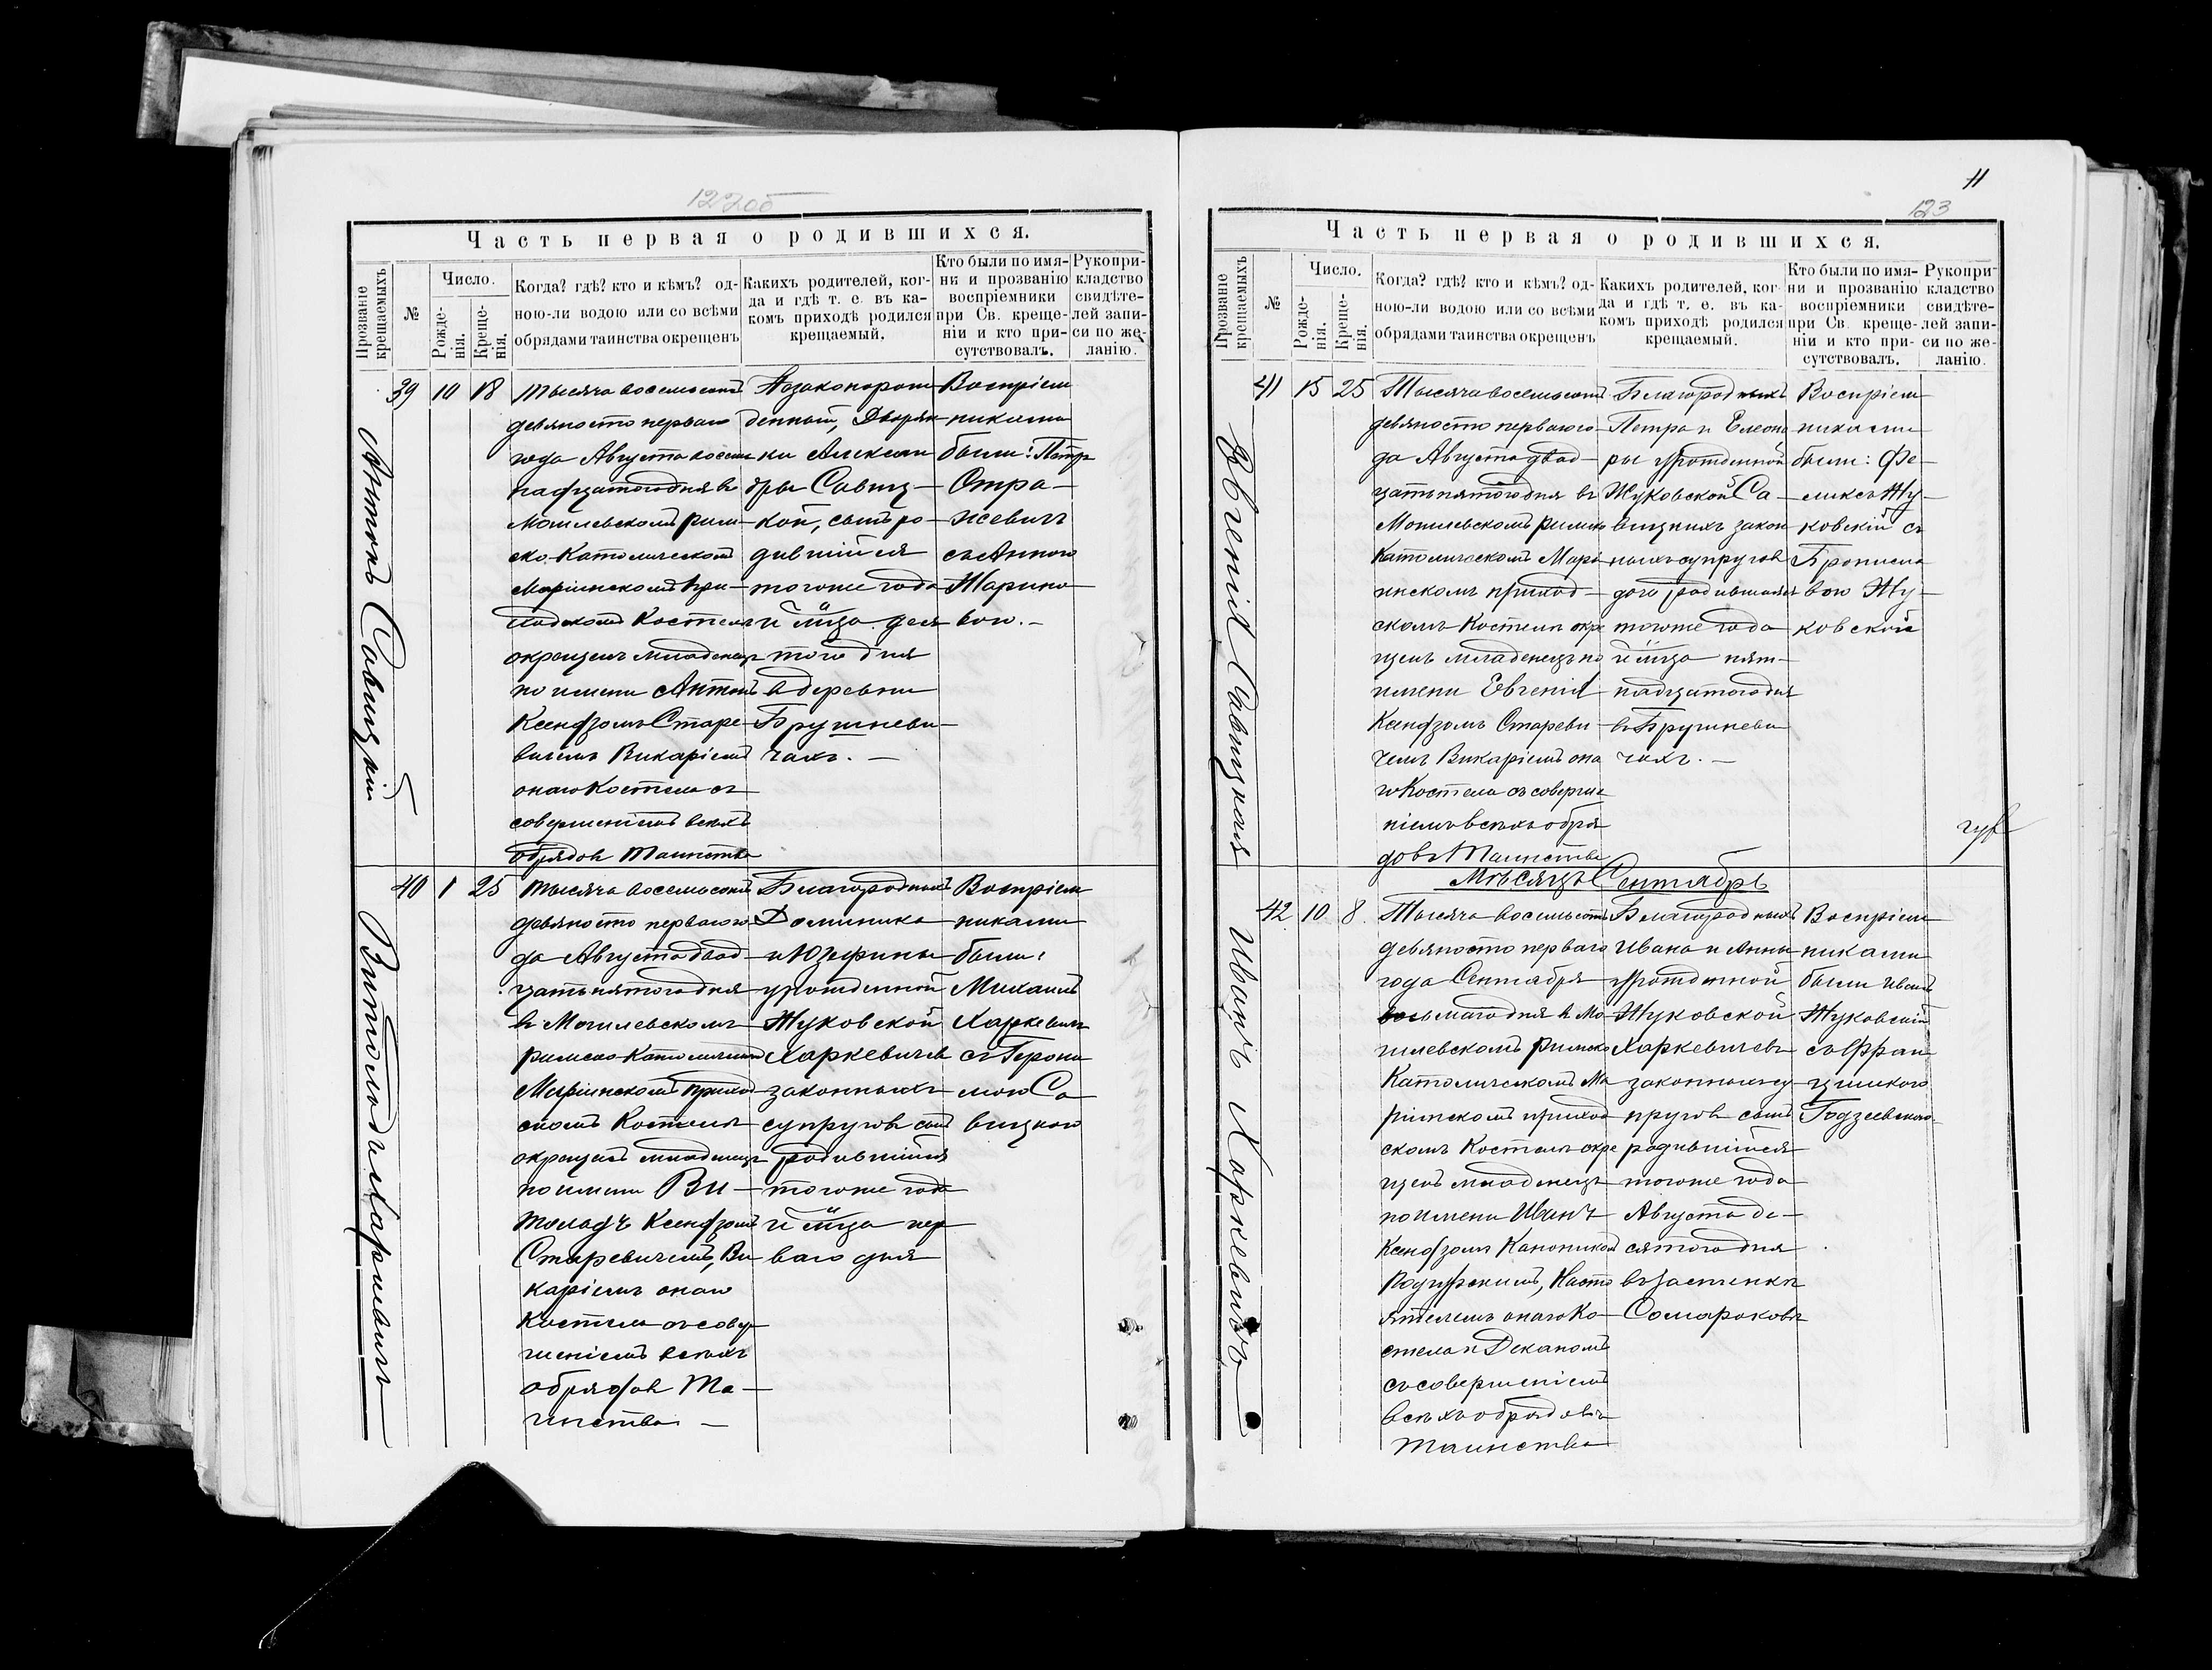 122об
Часть первая о родившихся.
Прозваніе крещаемыхъ
№
Число.
Рожде-
нія.
Креще-
нія.
Когда? гдѣ? кто и кѣмъ? од-
ною-ли водою или со всѣми
обрядами таинства окрещенъ
Какихъ родителей, ког-
да и гдѣ т. е. въ ка-
комъ приходѣ родился
крещаемый.
Кто были по имя-
ни и прозванію
воспріемники
при Св. креще-
ніи и кто при-
сутствовалъ.
Рукопри-
кладство
свидѣте-
лей запи-
си по же-
ланію.
Антонъ Савицкій
39 10 18
Тысяча восемьсотъ
девяносто перваго
года Августа восем
надцатого дня въ
Могилевскомъ Рим-
ско-Католическомъ
Маріинскомъ при-
ходскомъ Костелѣ
окрещенъ младенецъ
по имени Антонъ
Ксендзомъ Старе-
вичемъ Викаріемъ
онаго Костела съ
совершеніемъ всѣхъ
обрядовъ Таинства
Незаконорож
денный, Дворян
ки Алексан
дры Савиц-
кой, сынъ ро-
дившійся
тогоже года
и м̃ца деся
того дня
въ деревни
Брушневи-
чахъ. —
Воспріем
никами
были: Петръ
Стра-
жевичъ
съ Анною
Марино
вою. —
Витольдъ Харкевичъ
40 1 25
Тысяча восемьсотъ
девяносто перваго го
да Августа двад-
цать пятого дня
въ Могилевскомъ
Римско-Католическомъ
Маріинскомъ приход
скомъ Костелѣ
окрещенъ младенецъ
по имени Ви-
толадъ Ксендзомъ
Старевичемъ, Ви
каріемъ онаго
Костела съ совер
шеніемъ всѣхъ
обрядовъ Та-
инства —
Благородныхъ
Доминика
и Юзефины
урожденной
Жуковской
Харкевичев
законныхъ
супруговъ сынъ
родившійся
тогоже года
и м̃ца пер
ваго дня
Воспріем
никами
были:
Михаилъ
Харкевичъ
съ Герони
мою Са
вицкою
11
123
Часть первая о родившихся.
Прозваніе крещаемыхъ
№
Число.
Рожде-
нія.
Креще-
нія.
Когда? гдѣ? кто и кѣмъ? од-
ною-ли водою или со всѣми
обрядами таинства окрещенъ
Какихъ родителей, ког-
да и гдѣ т. е. въ ка-
комъ приходѣ родился
крещаемый.
Кто были по имя-
ни и прозванію
воспріемники
при Св. креще-
ніи и кто при-
сутствовалъ.
Рукопри-
кладство
свидѣте-
лей запи-
си по же-
ланію.
Евгенія Савицкая
41 15 25
Тысяча восемьсотъ
девяносто перваго го
да Августа двад-
цать пятого дня въ
Могилевскомъ Римско
Католическомъ Марі
инскомъ приход-
скомъ Костелѣ окре
щенъ младенецъ по
имени Евгенія
Ксендзомъ Стареви-
чемъ Викаріемъ она
го Костела съ соверше
ніемъ всѣхъ обря
довъ Таинства
Благородныхъ
Петра и Елеоно
ры урожденной
Жуковской Са-
вицкихъ закон
ныхъ супруговъ
дочь родившаяся
тогоже года
и м̃ца пят-
надцатого дня
въ Брушневи
чахъ. —
Воспріем
никами
были: Фе-
ликсъ Жу-
ковскій съ
Брониста
вою Жу-
ковской
Мѣсяцъ Сентябрь
Иванъ Харкевичъ
42 10 8
Тысяча восемьсотъ
девяносто перваго
года Сентября
восьмаго дня въ Мо-
гилевскомъ Римско
Католическомъ Ма
ріинскомъ приход
скомъ Костелѣ окре
щенъ младенецъ
по имени Иванъ
Ксендзомъ Каноникомъ
Подгурскимъ, Насто
ятелемъ онаго Ко-
стела и Деканомъ
съ совершеніемъ
всѣхъ обрядовъ
Таинства
Благородныхъ
Ивана и Анны
урожденной
Жуковской
Харкевичевъ
законныхъ су
пруговъ сынъ
родившійся
тогоже года
Августа де-
сятого дня
въ застенкѣ
Сомароковѣ
Воспріем
никами
были Иванъ
Жуковскій
съ Фран
цишкою